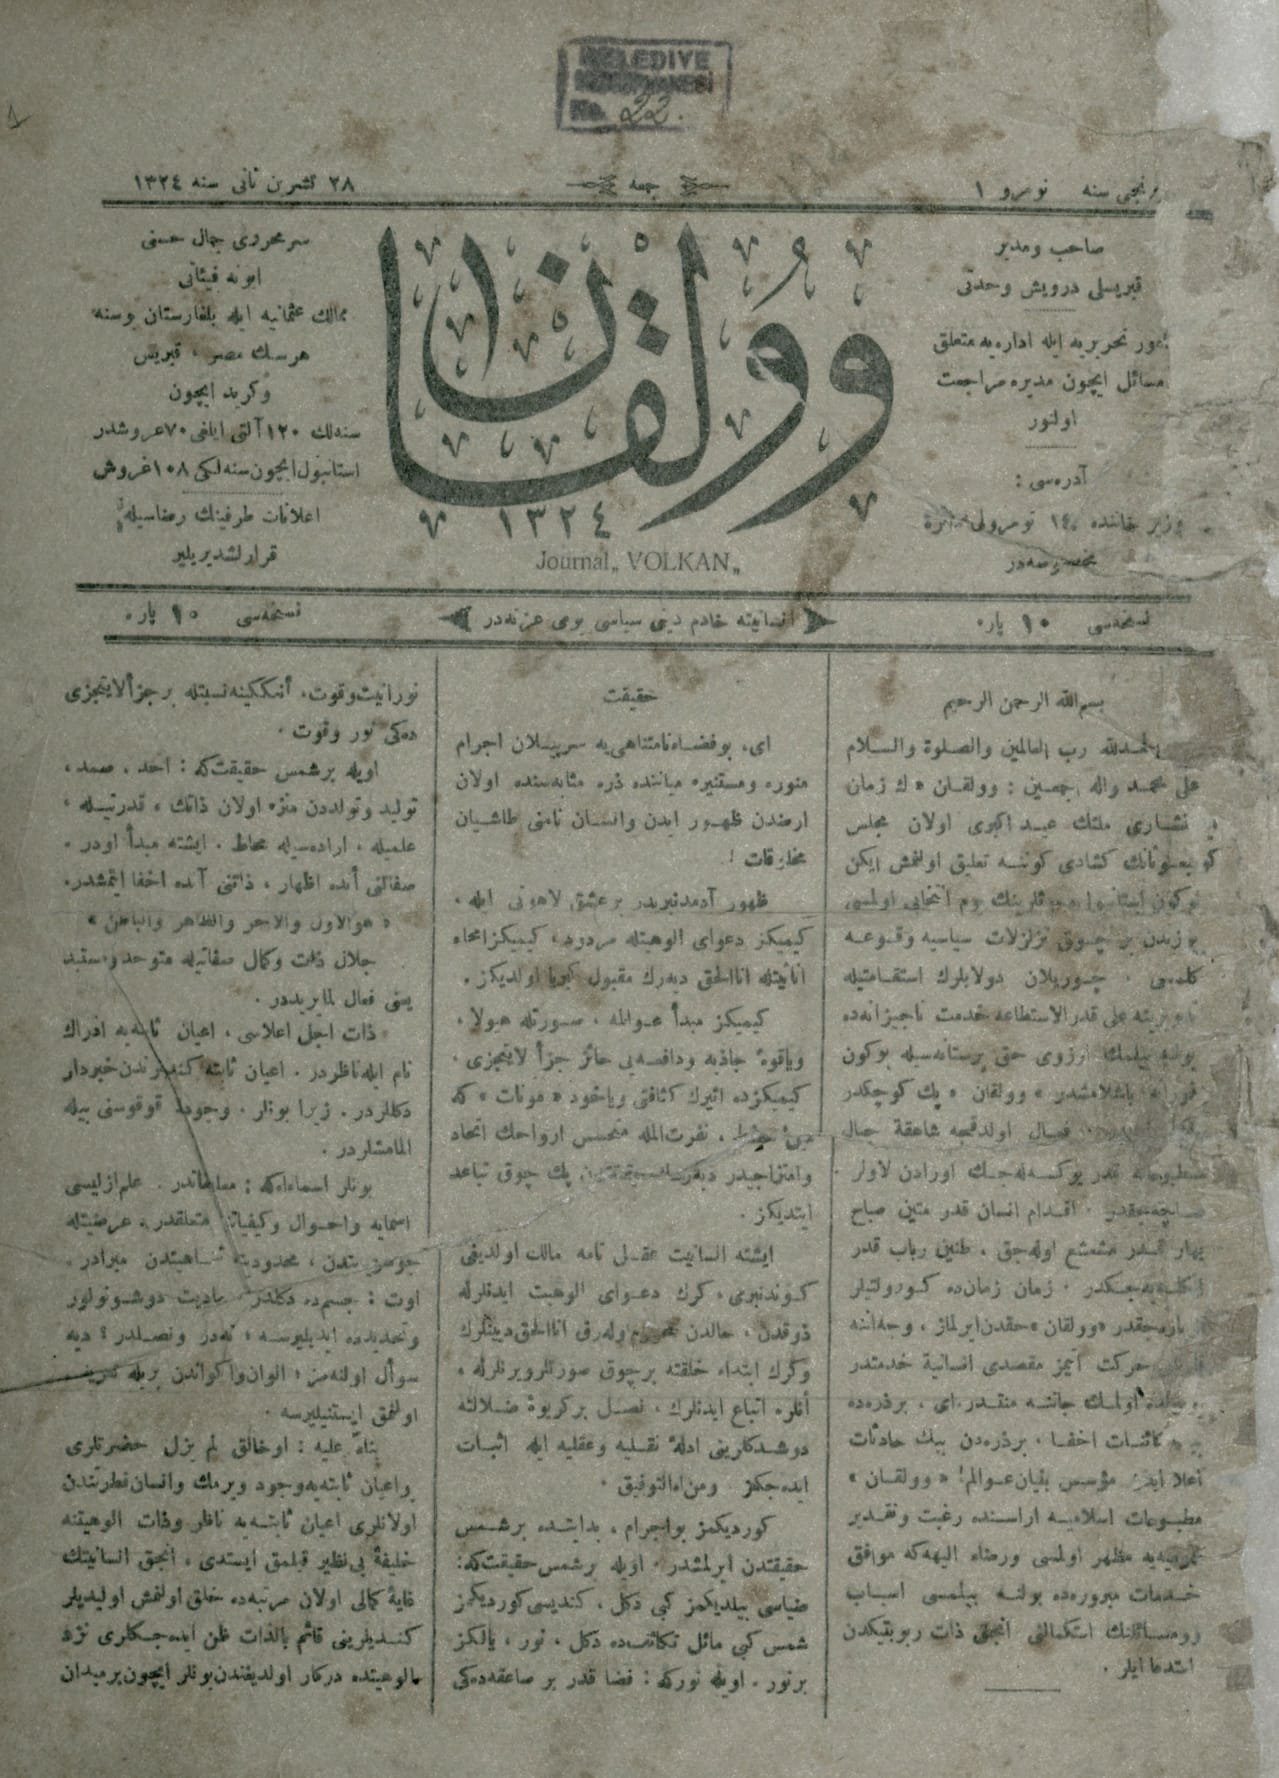 BELEDİYE
No. 22.
نومرو ١
جمعه
٢٨ تشرین ثانی سنه ١٣٢٤
صاحب ومدیر
قبریسلی درویش وحدتی
امور تحریریه ایله اداره‌یه متعلق
مسائل ایچون مدیره مراجعت
اولنور
آدره‌سی :
مخصوصه‌در
وولقان
١٣٢٤
Journal „ VOLKAN „
سر محرری جمال حسنی
ابونه فیئاتی
ممالك عثمانیه ایله بلغارستان بوسنه
هرسك مصر ، قبریس
وكرید ایچون
سنه‌لك ١٢٠ آلتی ایلغی ٧٠ غروشدر
استانبول ایچون سنه لكی ١٠٨ غروش
اعلانات طرفینك رضاسیله
قرارلشدیریلیر
نسخه‌سی ١٠ پاره
انسانیته خادم دینی سیاسی یومی غزته‌در
نسخه‌سی ١٠ پاره
بسم الله الرحمن الرحیم
الحمدلله رب العالمین والصلوة والسلام
علی محمد واله اجمعین : وولقان « ك زمان
نشاری ملتك عید اكبری اولان مجلس
كشادی كوننه تعلیق اولنمش ایكن
چوق تزلزلات سیاسیه وقوعه
كلمسی . چوریلان دولابلرك استقامتیله
علی قدر الاستطاعه خدمت ناچیزانه‌ده
ارزوی حق پرستانه‌سیله بوكون
باشلامشدر « وولقان » پك كوچكدر
اولدقجه شاهقهٔ جبال
قدر یوكسله‌جك اورادن لاولر
صاچه‌جقدر . اقدام انسان قدر متین صباح
بهار قدر مشعشع اوله‌جق ، طنین رباب قدر
زمان زمان‌ده كورولتیلر
« وولقان » حقدن ایرلماز ، وجدانه
حركت ایتمز مقصدی انسانیة خدمتدر
اولمك جاننه منتدر ای ، برذره‌ده
كائنات اخفا ، برذره‌دن بیك حادثات
مؤسس بنیان عوالم! « وولقان »
مطبوعات اسلامیه اراسنده رغبت وتقدیر
مظهر اولمسی ورضاء الهیه‌كه موافق
خدمات مبروره‌ده بولنه بیلمسی اسباب
ووسائلنك استكمالنی انجق ذات ربوبیتكدن
استدعا ایلر .
حقیقت
ای، بوفضاء نامتناهی‌یه سرپیلان اجرام
منوره ومستنیره میاننده ذره مثابه‌سنده اولان
ارضدن ظهور ایدن وانسان نامنی طاشیان
مخلوقات !
ظهور آدمدنبریدر بر عشق لاهوتی ایله ،
كیمیكز دعوای الوهیتله مردود ، كیمیكز امحاء
انانیتله انا الحق دیه‌رك مقبول كبریا اولدیكز .
كیمیكز مبدأ عوالمه ، صورتله هیولا ،
ویاقوهٔ جاذبه ودافعه‌یی حائز جزأ لایتجزی ،
كیمیكزده اثیرك كثافتی ویاخود « مونات » كه
نفرت‌المله متحسس ارواحك اتحاد
وامتزاجیدر پك چوق تباعد
ایتدیكز .
ایشته انسانیت عقل تامه مالك اولدیغی
كوندنبری، كرك دعوای الوهیت ایدنلرله
ذوقدن ، حالدن محروم اوله‌رق انا الحق دینلرك
وكرك ابتداء خلقته برچوق صورتلر ویرنلرله ،
آنلره اتباع ایدنلرك ، نصل بر كریوهٔ ضلالته
دوشدكلرینی ادلهٔ نقلیه وعقلیه ایله اثبات
ایده‌جكز . ومن الله التوفیق .
كوردیكمز بواجرام ، بدایتده بر شمس
حقیقتدن ایرلمشدر . اویله بر شمس حقیقت‌كه:
ضیاسی بیلدیكمز كبی دكل ، كندیسی كوردیكمز
شمس كبی مائل تكاثفه‌ده دكل ، نور ، یالكز
برنور . اویله نوركه : فضا قدر بر صاعقه‌ده‌كی
نورانیت وقوت، آنك‌كینه نسبتله بر جزأ لایتجزی
ده‌كی نور وقوت .
اویله بر شمس حقیقت‌كه : احد ، صمد ،
تولید وتولددن منزه اولان ذاتك ، قدرتیله ،
علمیله ، اراده‌سیله محاط . ایشته مبدأ اودر .
صفاتنی آنده اظهار ، ذاتنی آنده اخفا ایتمشدر.
« هو الاول والآخر والظاهر والباطن »
جلال ذات وكمال صفاتیله متوحد
یعنی فعال لما یریددر .
ذات اجل اعلاسی ، اعیان ثابته‌یه ادراك
تام ایله ناظردر . اعیان ثابته كندیلرندن خبردار
دكللردر . زیرا بونلر ، وجود قوقوسنی بیله
المامشلردر .
بونلر اسماءالله : علم ازلیسی
اسمایه واحوال وكیفیاته متعلقدر . عرضیتله
محدودیته تناهیتدن مبرادر .
اوت : جسم‌ده دكلدر مادیت دوشونولور
وتحدیده ایدیلیرسه ؛ نه‌در ونصلدر ؟ دیه
سؤال اولنه‌مز ؛ الوان واكواندن بریله تعریف
اولنمق ایستنیلیرسه .
بناءً علیه : اوخالق لم یزل حضرتلری
واعیان ثابته‌یه وجود ویرمك وانسان فطرتندن
اولانلری اعیان ثابته‌یه ناظر وذات الوهیتنه
خلیفهٔ بی‌نظیر قیلمق ایستدی ، انجق انسانیتك
غایهٔ كمالی اولان مرتبه‌ده خلق اولنمش اولیدیلر
كندیلرینی قائم بالذات ظن ایده‌جكلری نزد
الوهیتده دركار اولدیغندن بونلر ایچون بر میدان